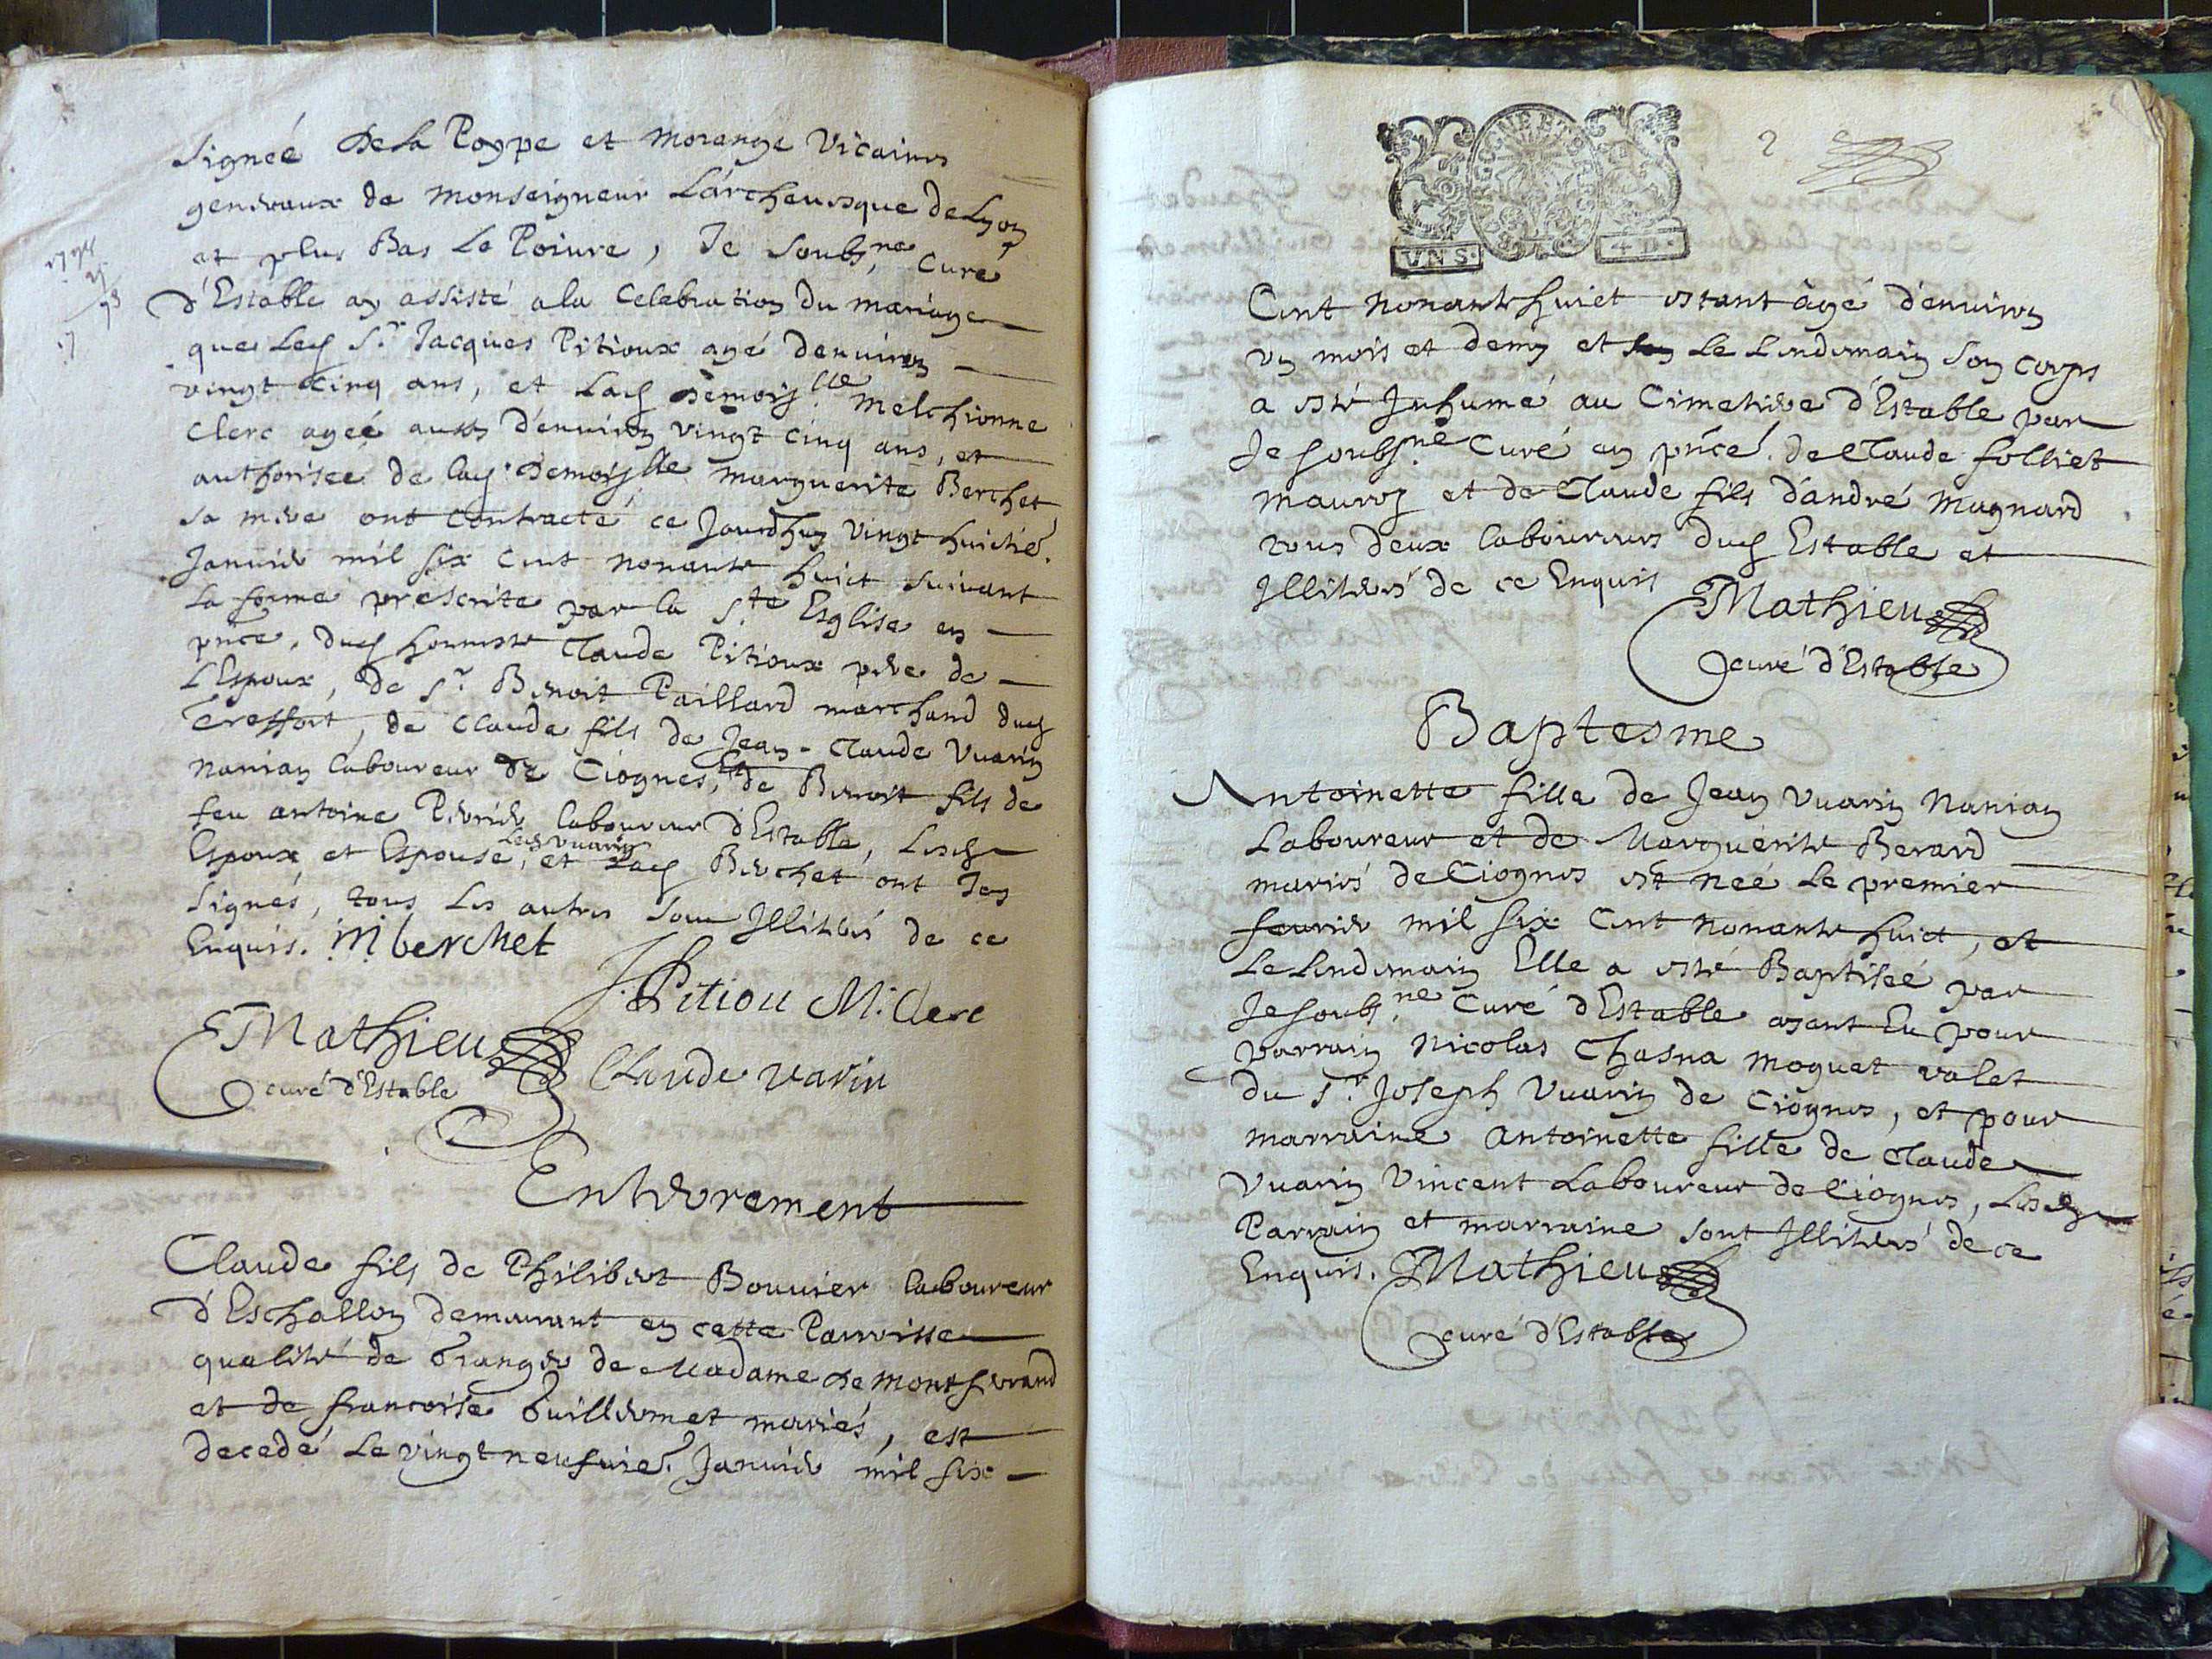 Signeé De La Poype et Morange Vicaires
generaux de Monseigneur L'archeuesque de Lyon
et plus Bas Le Poiure, Je soubs.né Curé
d'Estable ay assisté a la Celebration du mariage
que led Sr. Jacques Pitioux agé d'enuiron
vingt cinq ans, et lad Demoiselle Melchionne
Clerc ageé aussy d'enuiron vingt cinq ans, et
authorisee de lad. Demoiselle Marguerite Berchet
sa mere ont contracté ce Jourdhuy vingt huictié.
Januier mil six cent nonante huict suivant
la forme prescrite par la Ste. Esglise en
pñce, dud honneste Claude Pitioux pere de
L'Espoux, de Sr. Benoit Paillard marchand dud
Treffort, de Claude fils de Jean-Claude Vuarin
Nanian laboureur de Ciognes, et de Benoit fils de
feu antoine Perrier laboureur d'Estable, Lesd
Espoux et Espouse, led Vuarin et Lad Berchet ont Icy
signés, tous les autres sont Illiterés de ce
Enquis. M berchet
J. Pitiou M. Clerc
Mathieu
curé d'Estable
Claude varin
Enterrement
Claude fils de Philibert Bouuier laboureur
d'Eschallon demeurant en cette Parroisse
qualité de Granger de Madame de Montferrand
et de francoise Guillermet mariés, est
decedé le vingt neufuié. Januier mil six
2
VN S.
4 D.
Cent nonante huict estant âgé d'enuiron
un mois et demy et Le Lendemain son corps
a esté Inhumé au Cimetiere d'Estable par
Je soubs.né Curé en pñce. de Claude folliet
mauroz et de Claude fils d'andré Magnard
tous deux laboureurs dud Estable et
Illiterés de ce Enquis
Mathieu
curé d'Estable
Baptesme
Antoinette fille de Jean Vuarin Nanian
Laboureur et de Marguerite Berard
mariés de Ciognes est neé Le premier
feurier mil six cent nonante huict, et
Le Lendemain Elle a esté Baptiseé par
Je soubs.né Curé d'Estable ayant Eu pour
parrain Nicolas Chasna Moguet valet
du Sr. Joseph Vuarin de Ciognes, et pour
marraine Antoinette fille de Claude
Vuarin Vincent Laboureur de Ciognes, Lesd
Parrain et marraine sont Illiterés de ce
Enquis. Mathieu
curé d'Estable